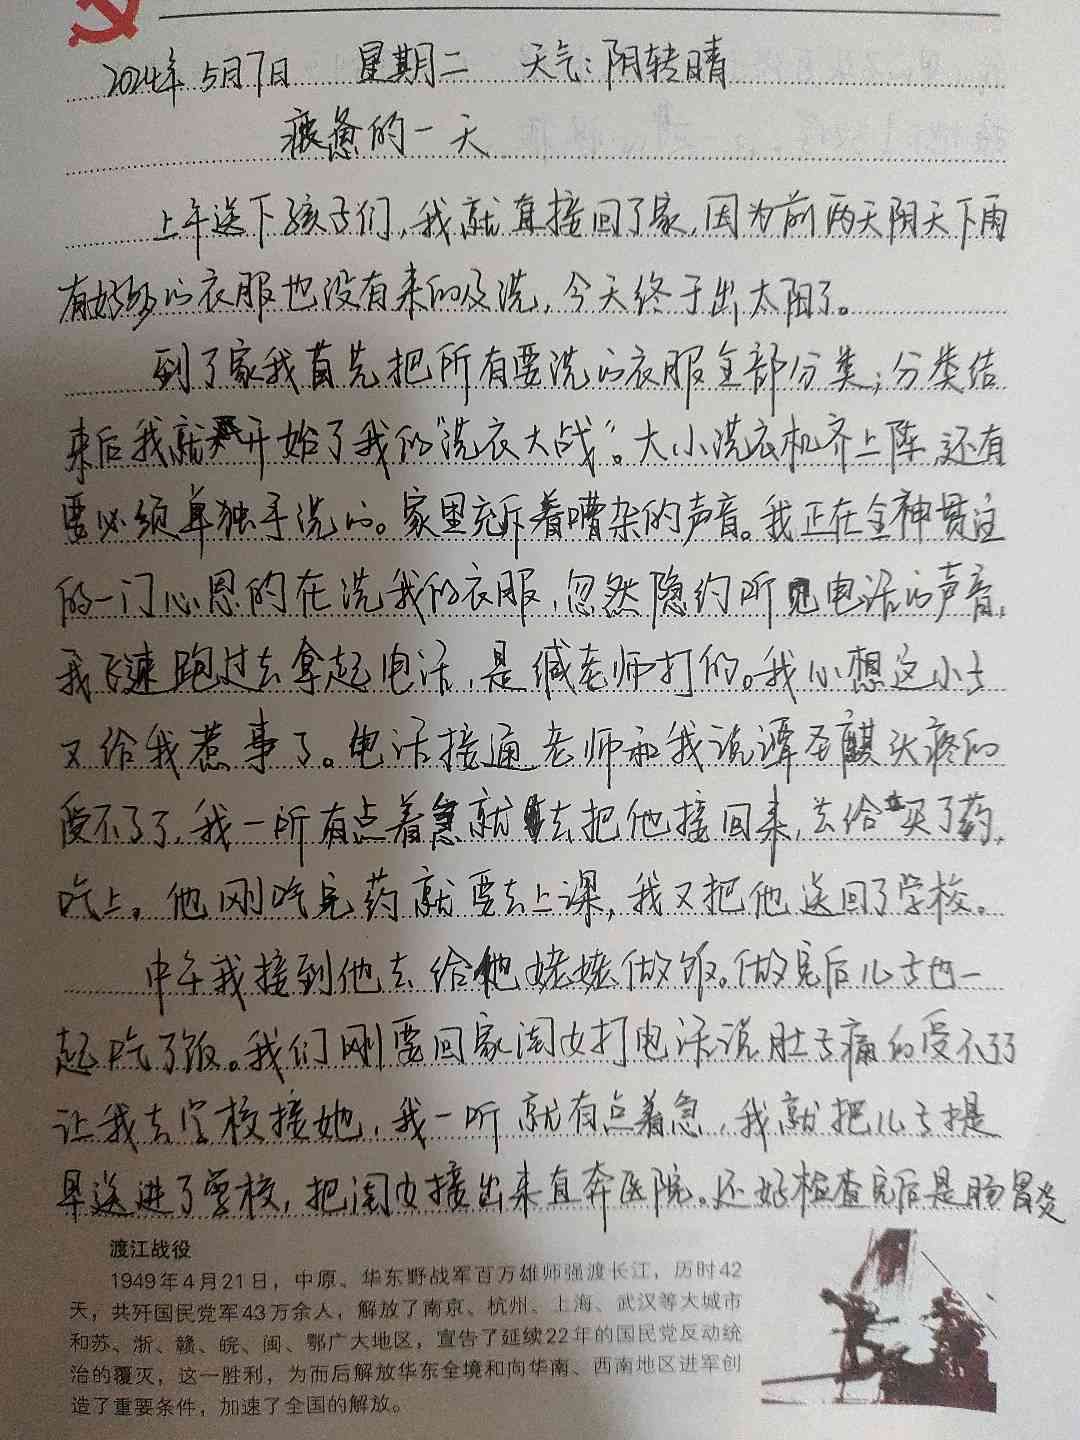 2024年5月7日 星期二 天气:阴转晴
疲惫的一天
上午送下孩子们,我就直接回了家,因为前两天阴天下雨
有好多的衣服也没有来的及洗,今天终于出太阳了。
到了家我首先把所有要洗的衣服全部分类;分类结
束后我就开始了我的“洗衣大战”。大小洗衣机齐上阵,还有
要必须单独手洗的。家里充斥着嘈杂的声音。我正在全神贯注
的一门心思的在洗我的衣服,忽然隐约听见电话的声音,
我飞速跑过去拿起电话,是臧老师打的。我心想这小子
又给我惹事了。电话接通老师和我说谭圣麒头疼的
受不了了,我一听有点着急就去把他接回来,去给买了药,
吃上。他刚吃完药就要去上课,我又把他送回了学校。
中午我接到他去给他姥姥做饭。做完后儿子也一
起吃了饭。我们刚要回家闺女打电话说肚子痛的受不了了
让我去学校接她,我一听就有点着急,我就把儿子提
早送进了学校,把闺女接出来直奔医院。还好检查完后是肠胃炎
渡江战役
1949年4月21日,中原、华东野战军百万雄师强渡长江,历时42
天,共歼国民党军43万余人,解放了南京、杭州、上海、武汉等大城市
和苏、浙、赣、皖、闽、鄂广大地区,宣告了延续22年的国民党反动统
治的覆灭,这一胜利,为而后解放华东全境和向华南、西南地区进军创
造了重要条件,加速了全国的解放。